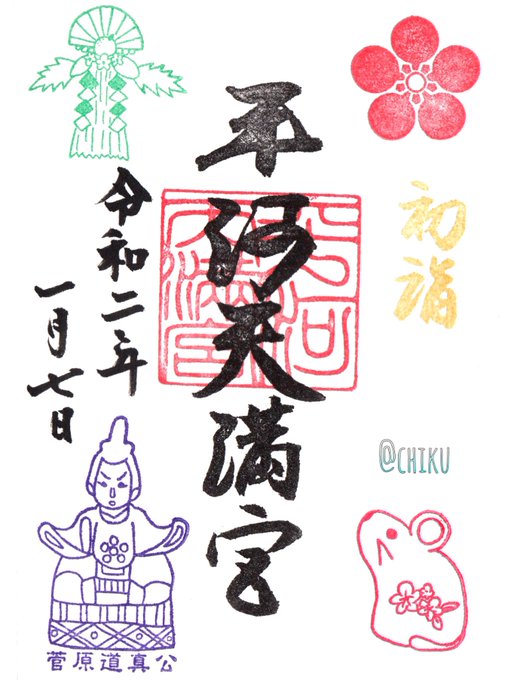 初詣
平河天満宮
平河天満宮
令和二年
一月七日
@CHIKU
菅原道真公